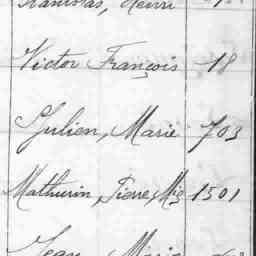 Stanislas, Henri
Victor François 18
Julien, Marie 703
Mathurin, Pierre, Mie 1501
Jean Marie